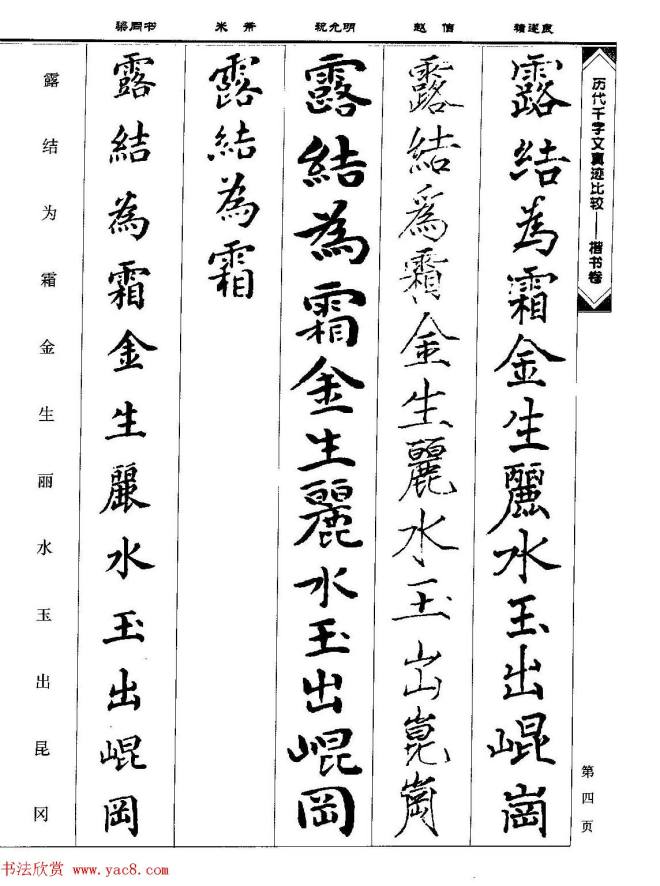 历代千字文真迹比较——楷书卷
第四页
褚遂良
露結為霜金生麗水玉出崐崗
赵佶
露結爲霜金生麗水玉出崑崗
祝允明
露結為霜金生麗水玉出崐岡
米芾
露結為霜
梁同书
露結為霜金生麗水玉出崐岡
露结为霜金生丽水玉出昆冈
书法欣赏 www.yac8.com